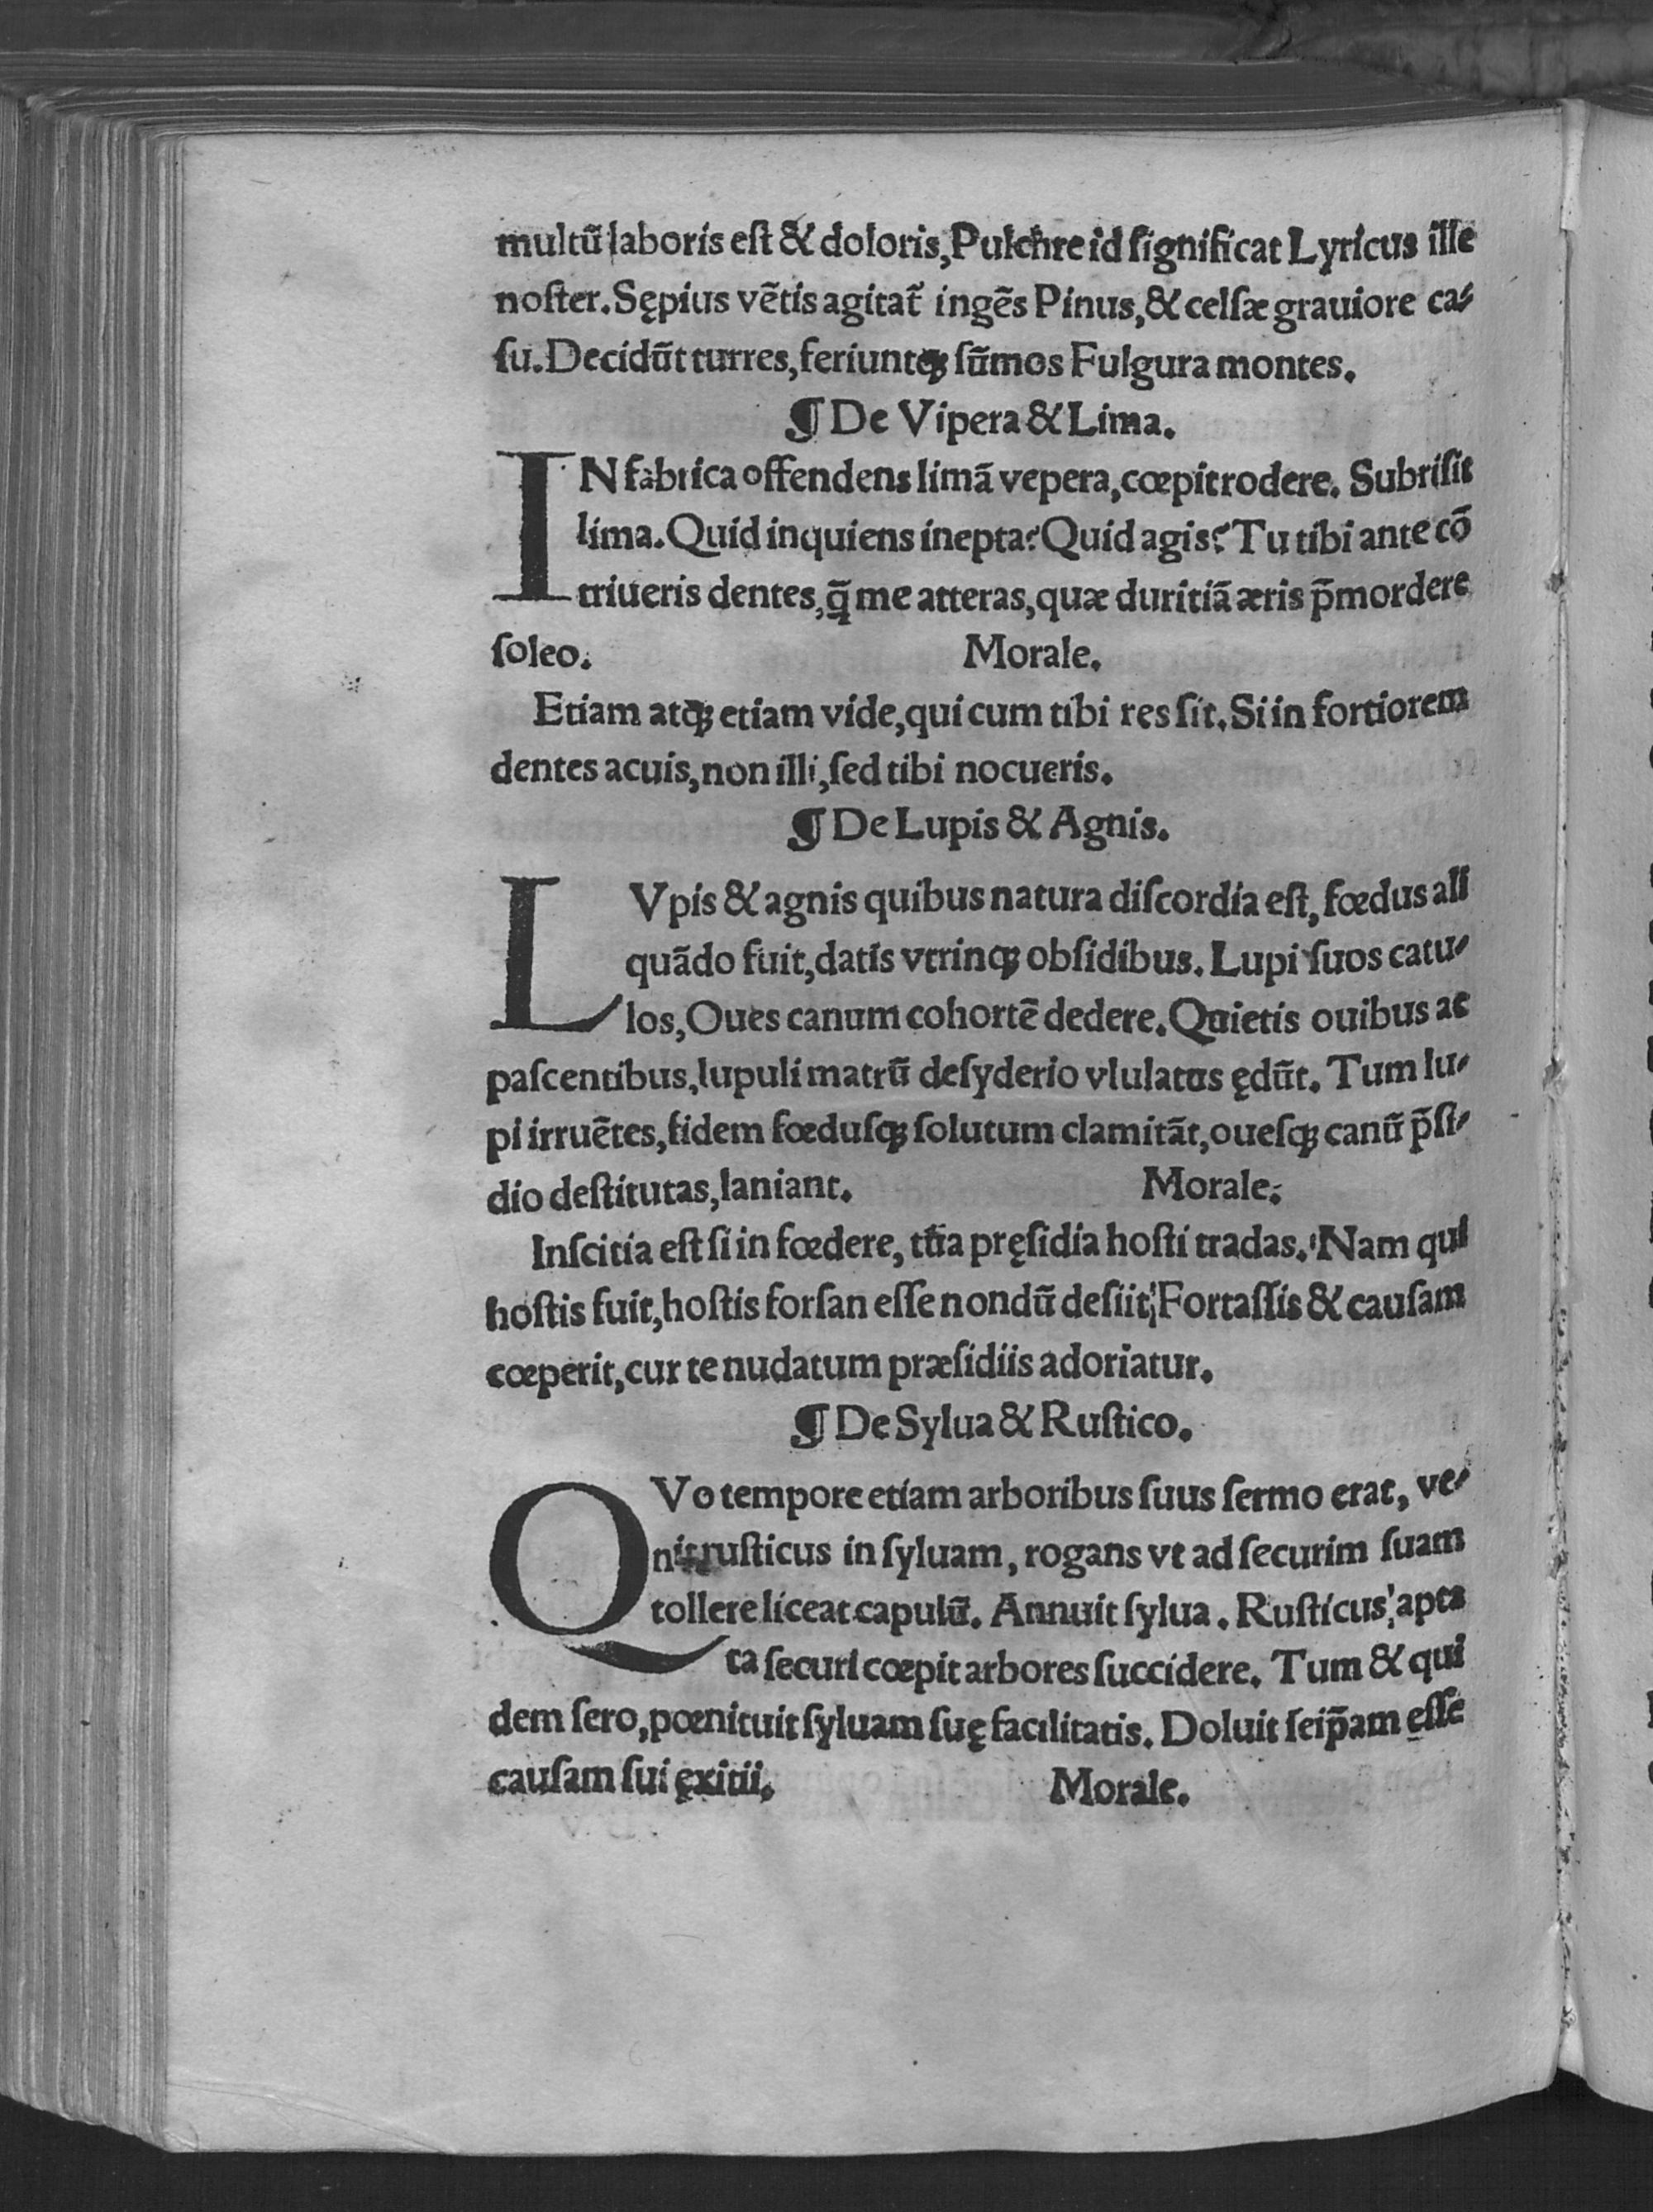 multũ laboris eſt & doloris, Pulchre id ſignificat Lyricus ille
noſter. Sępius vẽtis agitat᷒ ingẽs Pinus, & celſæ grauiore ca⸗
ſu. Decidũt turres, feriuntqꝫ ſũmos Fulgura montes.
¶ De Vipera & Lima.
IN fabrica offendens limã vepera, cœpit rodere. Subriſit
lima. Quid inquiens inepta? Quid agis? Tu tibi ante cõ
triueris dentes, q̃ me atteras, quæ duritiã æris p̃mordere
ſoleo. Morale.
Etiam atqꝫ etiam vide, qui cum tibi res ſit. Si in fortiorem
dentes acuis, non illi, ſed tibi nocueris.
¶ De Lupis & Agnis.
LVpis & agnis quibus natura diſcordia eſt, fœdus ali
quãdo fuit, datis vtrinqꝫ obſidibus. Lupi ſuos catu⸗
los, Oues canum cohortẽ dedere. Quietis ouibus ac
paſcentibus, lupuli matrũ deſyderio vlulatus ędũt. Tum lu⸗
pi irruẽtes, fidem fœduſqꝫ ſolutum clamitãt, oueſqꝫ canũ p̃ſi⸗
dio deſtitutas, laniant. Morale.
Inſcitia eſt ſi in fœdere, tũa pręſidia hoſti tradas. Nam qui
hoſtis fuit, hoſtis forſan eſſe nondũ deſiit, Fortaſſis & cauſam
cœperit, cur te nudatum præſidiis adoriatur.
¶ De Sylua & Ruſtico.
QVo tempore etiam arboribus ſuus ſermo erat, ve⸗
nit ruſticus in ſyluam, rogans vt ad ſecurim ſuam
tollere liceat capulũ. Annuit ſylua. Ruſticus, apta
ta ſecuri cœpit arbores ſuccidere. Tum & qui
dem ſero, pœnituit ſyluam ſuę facilitatis. Doluit ſeip̃am eſſe
cauſam ſui ęxitii. Morale.